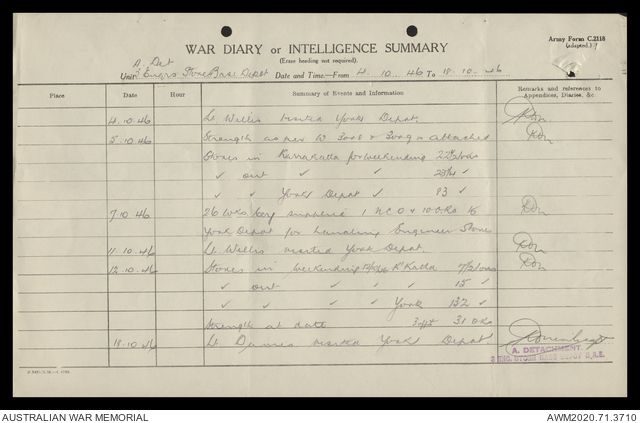 Army Form C.2118
(adapted.)
WAR DIARY or INTELLIGENCE SUMMARY
(Erase heading not required).
A. Det
Unit: Engrs Store Base Depot Date and Time:—From 4.10.46 To 18.10.46
Place Date Hour Summary of Events and Information Remarks and references to Appendices, Diaries, &c.
4.10.46 Lt Willis visited York Depot.
5.10.46 Strength as per W 3008 & attached
Stores in Karrakatta for weekending 22½ tons
✓ out ✓ ✓ 23¼ ✓
✓ ✓ York Depot ✓ 83 ✓
7.10.46 26 Wks Coy supplied 1 N.C.O & 10 O.Rs to
York Depot for handling Engineer Stores
11.10.46 Lt. Willis visited York Depot.
12.10.46 Stores in weekending 12/10/46 K'Katta 7½ tons
✓ out ✓ ✓ ✓ 15 ✓
✓ ✓ ✓ York 132 ✓
Strength at date 3 offs 31 O.Rs
18.10.46 Lt visited York Depot
A. DETACHMENT.
2 ENG. STORE BASE DEPOT R.A.E.
AUSTRALIAN WAR MEMORIAL
AWM2020.71.3710